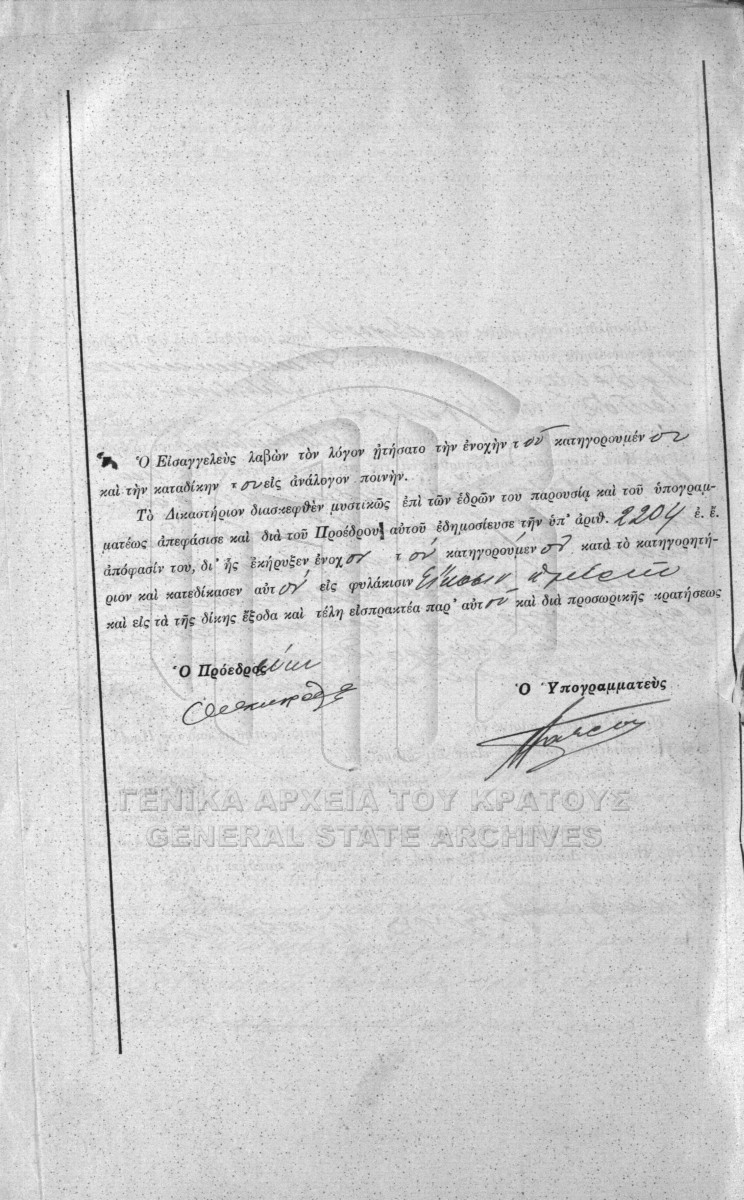 Ὁ Εἰσαγγελεὺς λαβὼν τὸν λόγον ᾐτήσατο τὴν ἐνοχὴν τοῦ κατηγορουμένου
καὶ τὴν καταδίκην του εἰς ἀνάλογον ποινήν.
Τὸ Δικαστήριον διασκεφθὲν μυστικῶς ἐπὶ τῶν ἑδρῶν του παρουσίᾳ καὶ τοῦ ὑπογραμ-
ματέως ἀπεφάσισε καὶ διὰ τοῦ Προέδρου αὐτοῦ ἐδημοσίευσε τὴν ὑπ' ἀριθ. 2204 ἐ. ἔ.
ἀπόφασίν του, δι' ἧς ἐκήρυξεν ἔνοχον τοῦ κατηγορούμενον κατὰ τὸ κατηγορητή-
ριον καὶ κατεδίκασεν αὐτὸν εἰς φυλάκισιν Εἴκοσιν ἡμερῶν
καὶ εἰς τὰ τῆς δίκης ἔξοδα καὶ τέλη εἰσπρακτέα παρ' αὐτοῦ καὶ διὰ προσωρικῆς κρατήσεως
Ὁ Πρόεδρος
Ὁ Ὑπογραμματεὺς
ΓΕΝΙΚΑ ΑΡΧΕΙΑ ΤΟΥ ΚΡΑΤΟΥΣ
GENERAL STATE ARCHIVES